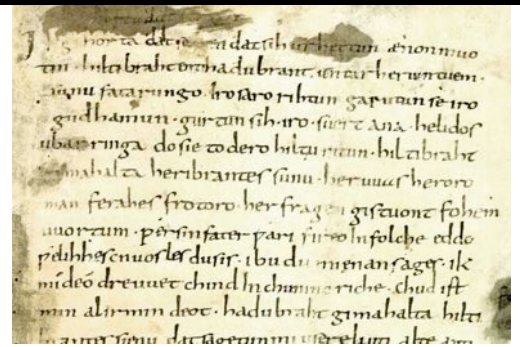 gihorta dat dat sih urhettun ænon muo
tin · hiltibraht enti hadubrant · untar heriun tuem ·
sunu fatarungo · iro saro rihtun garutun se iro
gudhamun · gurtun sih · iro · suert ana · helidos
ubar ringa do sie to dero hiltu ritun · hiltibraht
gimahalta heribrantes sunu · her uuas heroro
man ferahes frotoro · her fragen gistuont fohem
uuortum · ƿer sin fater ƿari fireo In folche eddo
ƿelihhes cnuosles du sis · ibu du mi enan sages · ik
mi deo dre uuet chind In chunincriche · chud ist
min al irmin deot · hadubraht gimahalta hilti
brantes sunu dat sagetun mi usere liuti alte anti